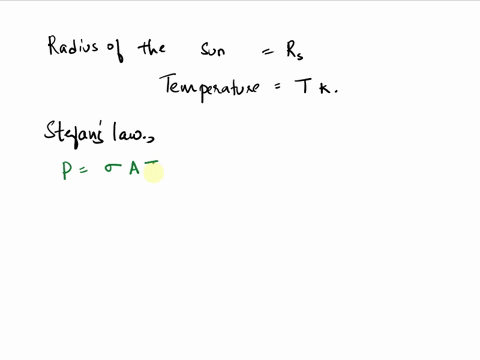 Radius of the sun = Rs
Temperature = T K.
Stefan's law.,
P = σ A T